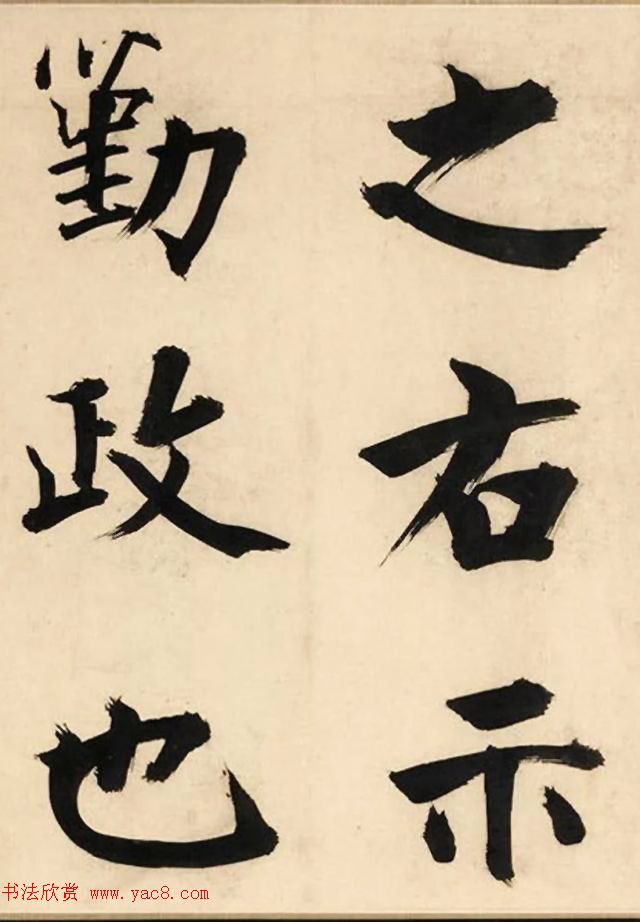 之右示
勤政也
书法欣赏 www.yac8.com